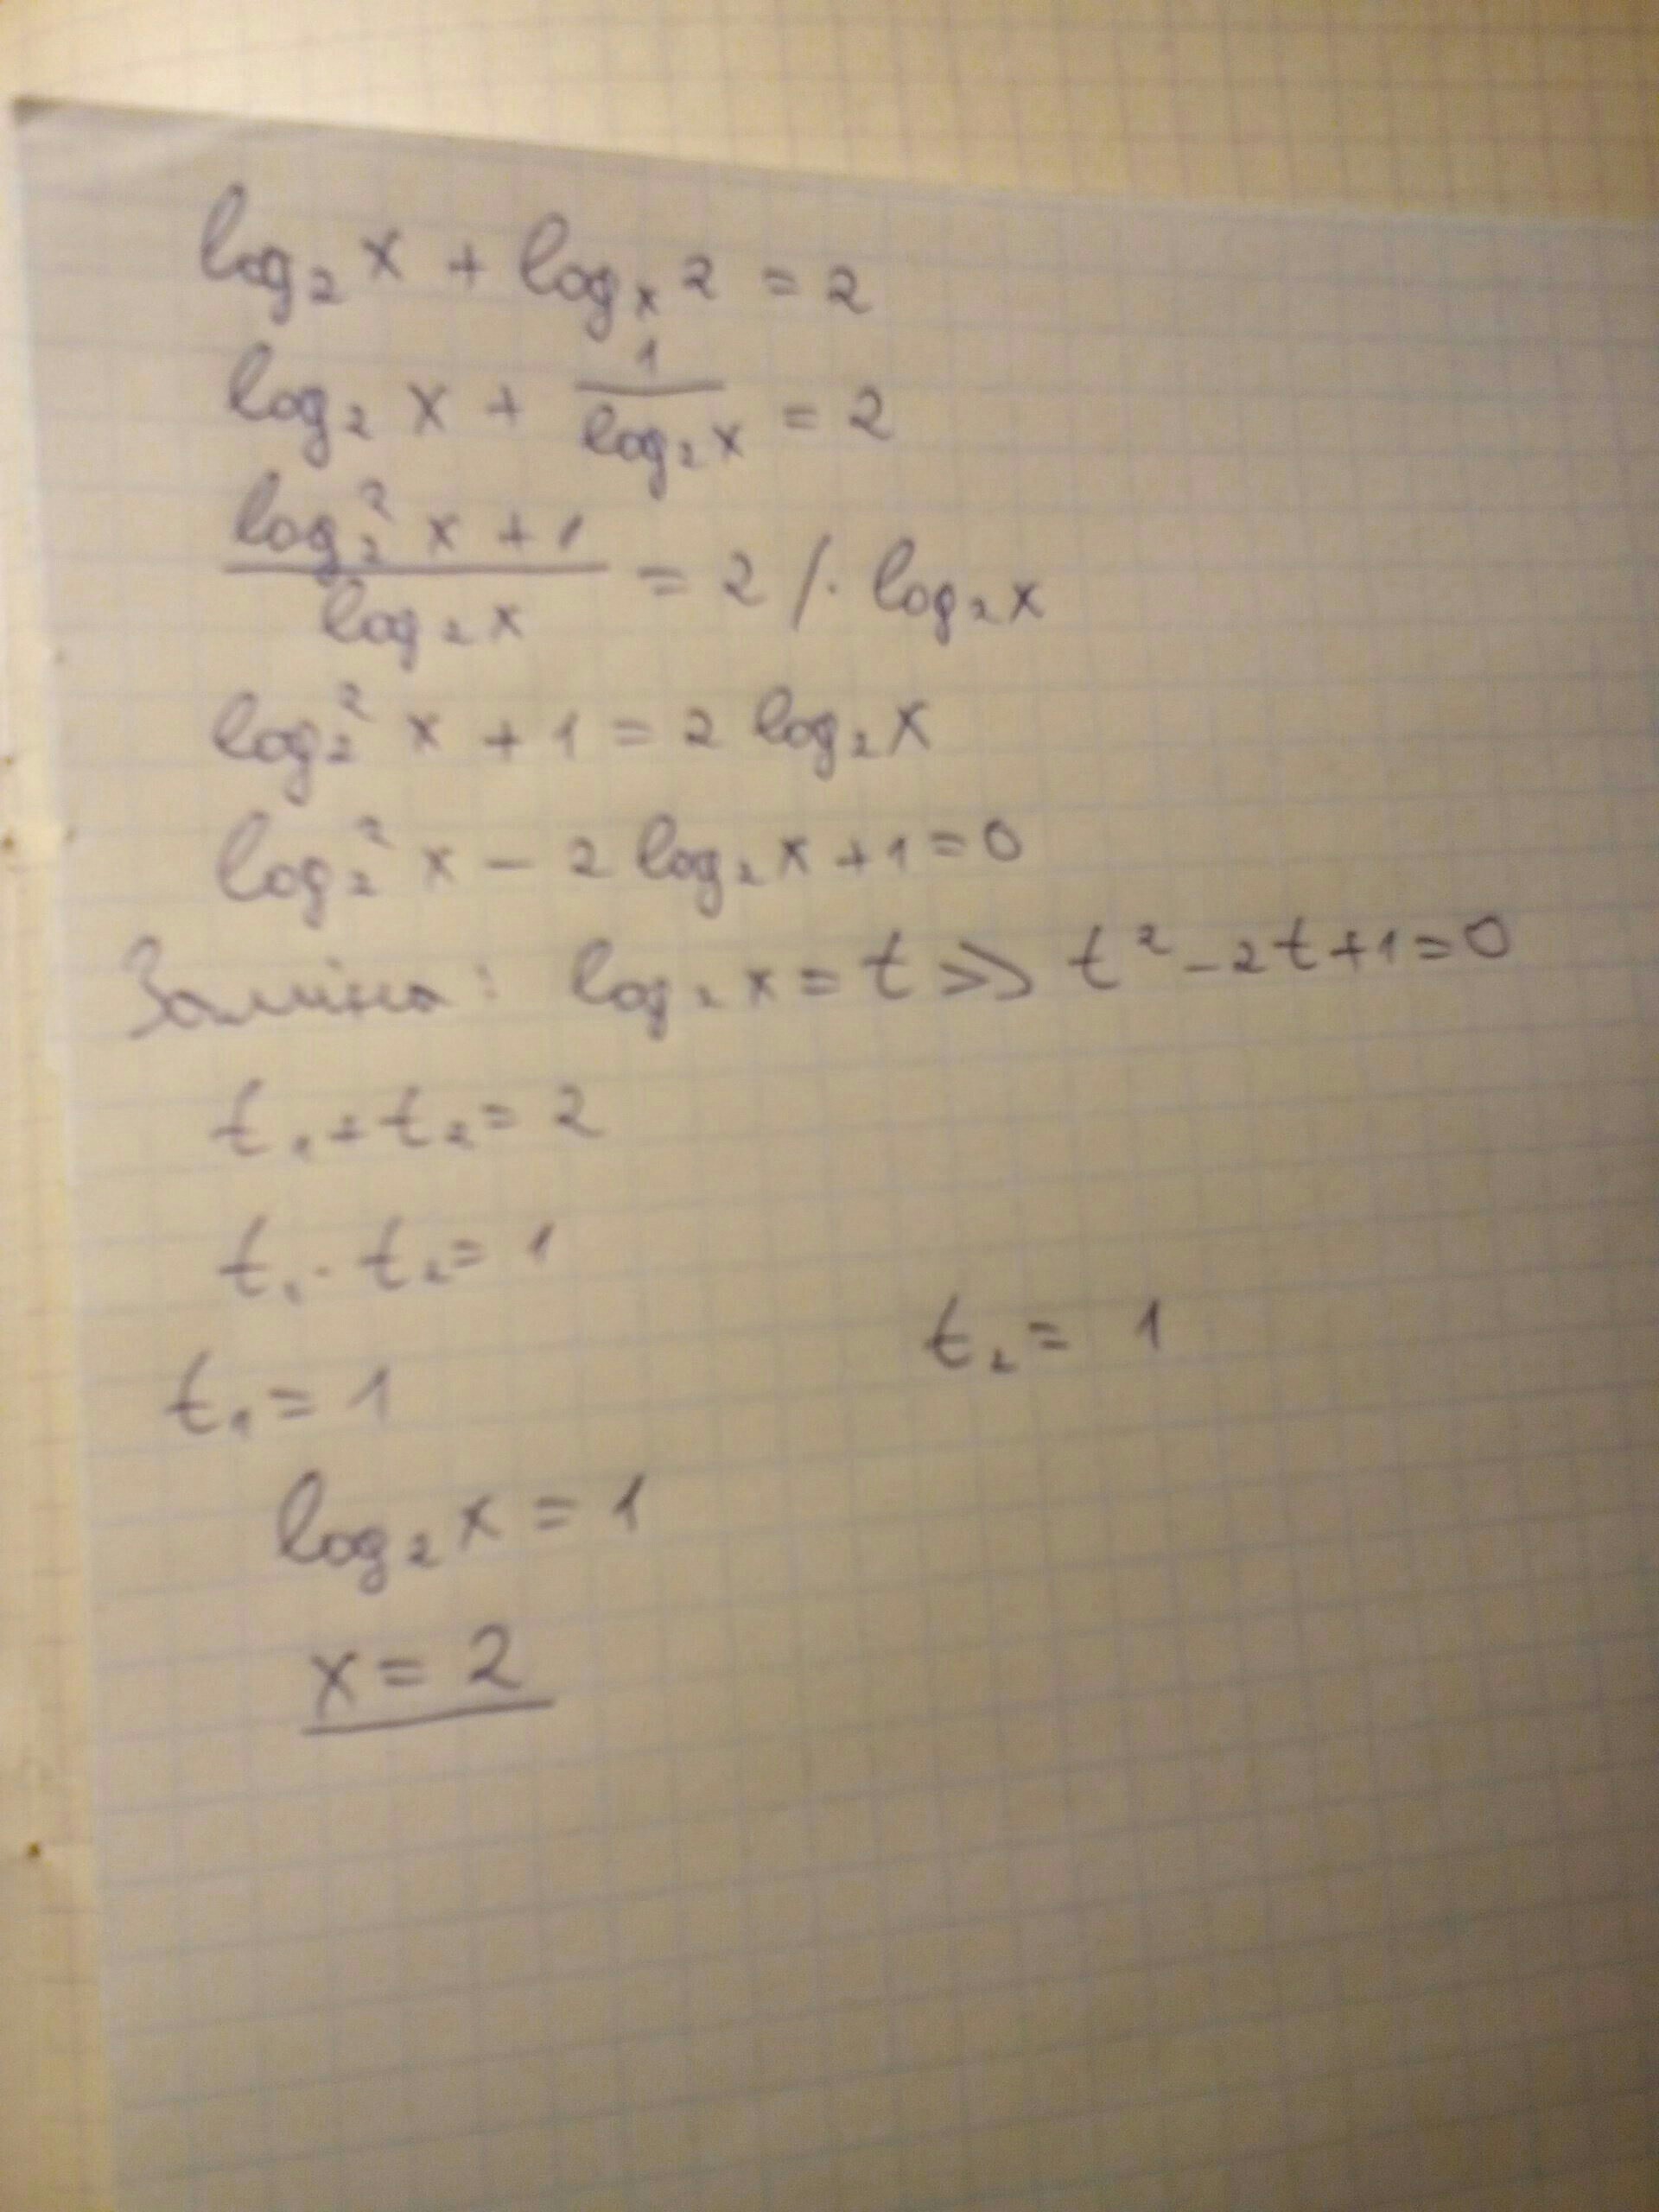 log₂ x + logₓ 2 = 2
log₂ x + 1/log₂ x = 2
(log₂² x + 1)/log₂ x = 2 /· log₂ x
log₂² x + 1 = 2 log₂ x
log₂² x − 2 log₂ x + 1 = 0
Заміна: log₂ x = t => t² − 2t + 1 = 0
t₁ + t₂ = 2
t₁ · t₂ = 1
t₁ = 1 t₂ = 1
log₂ x = 1
x = 2